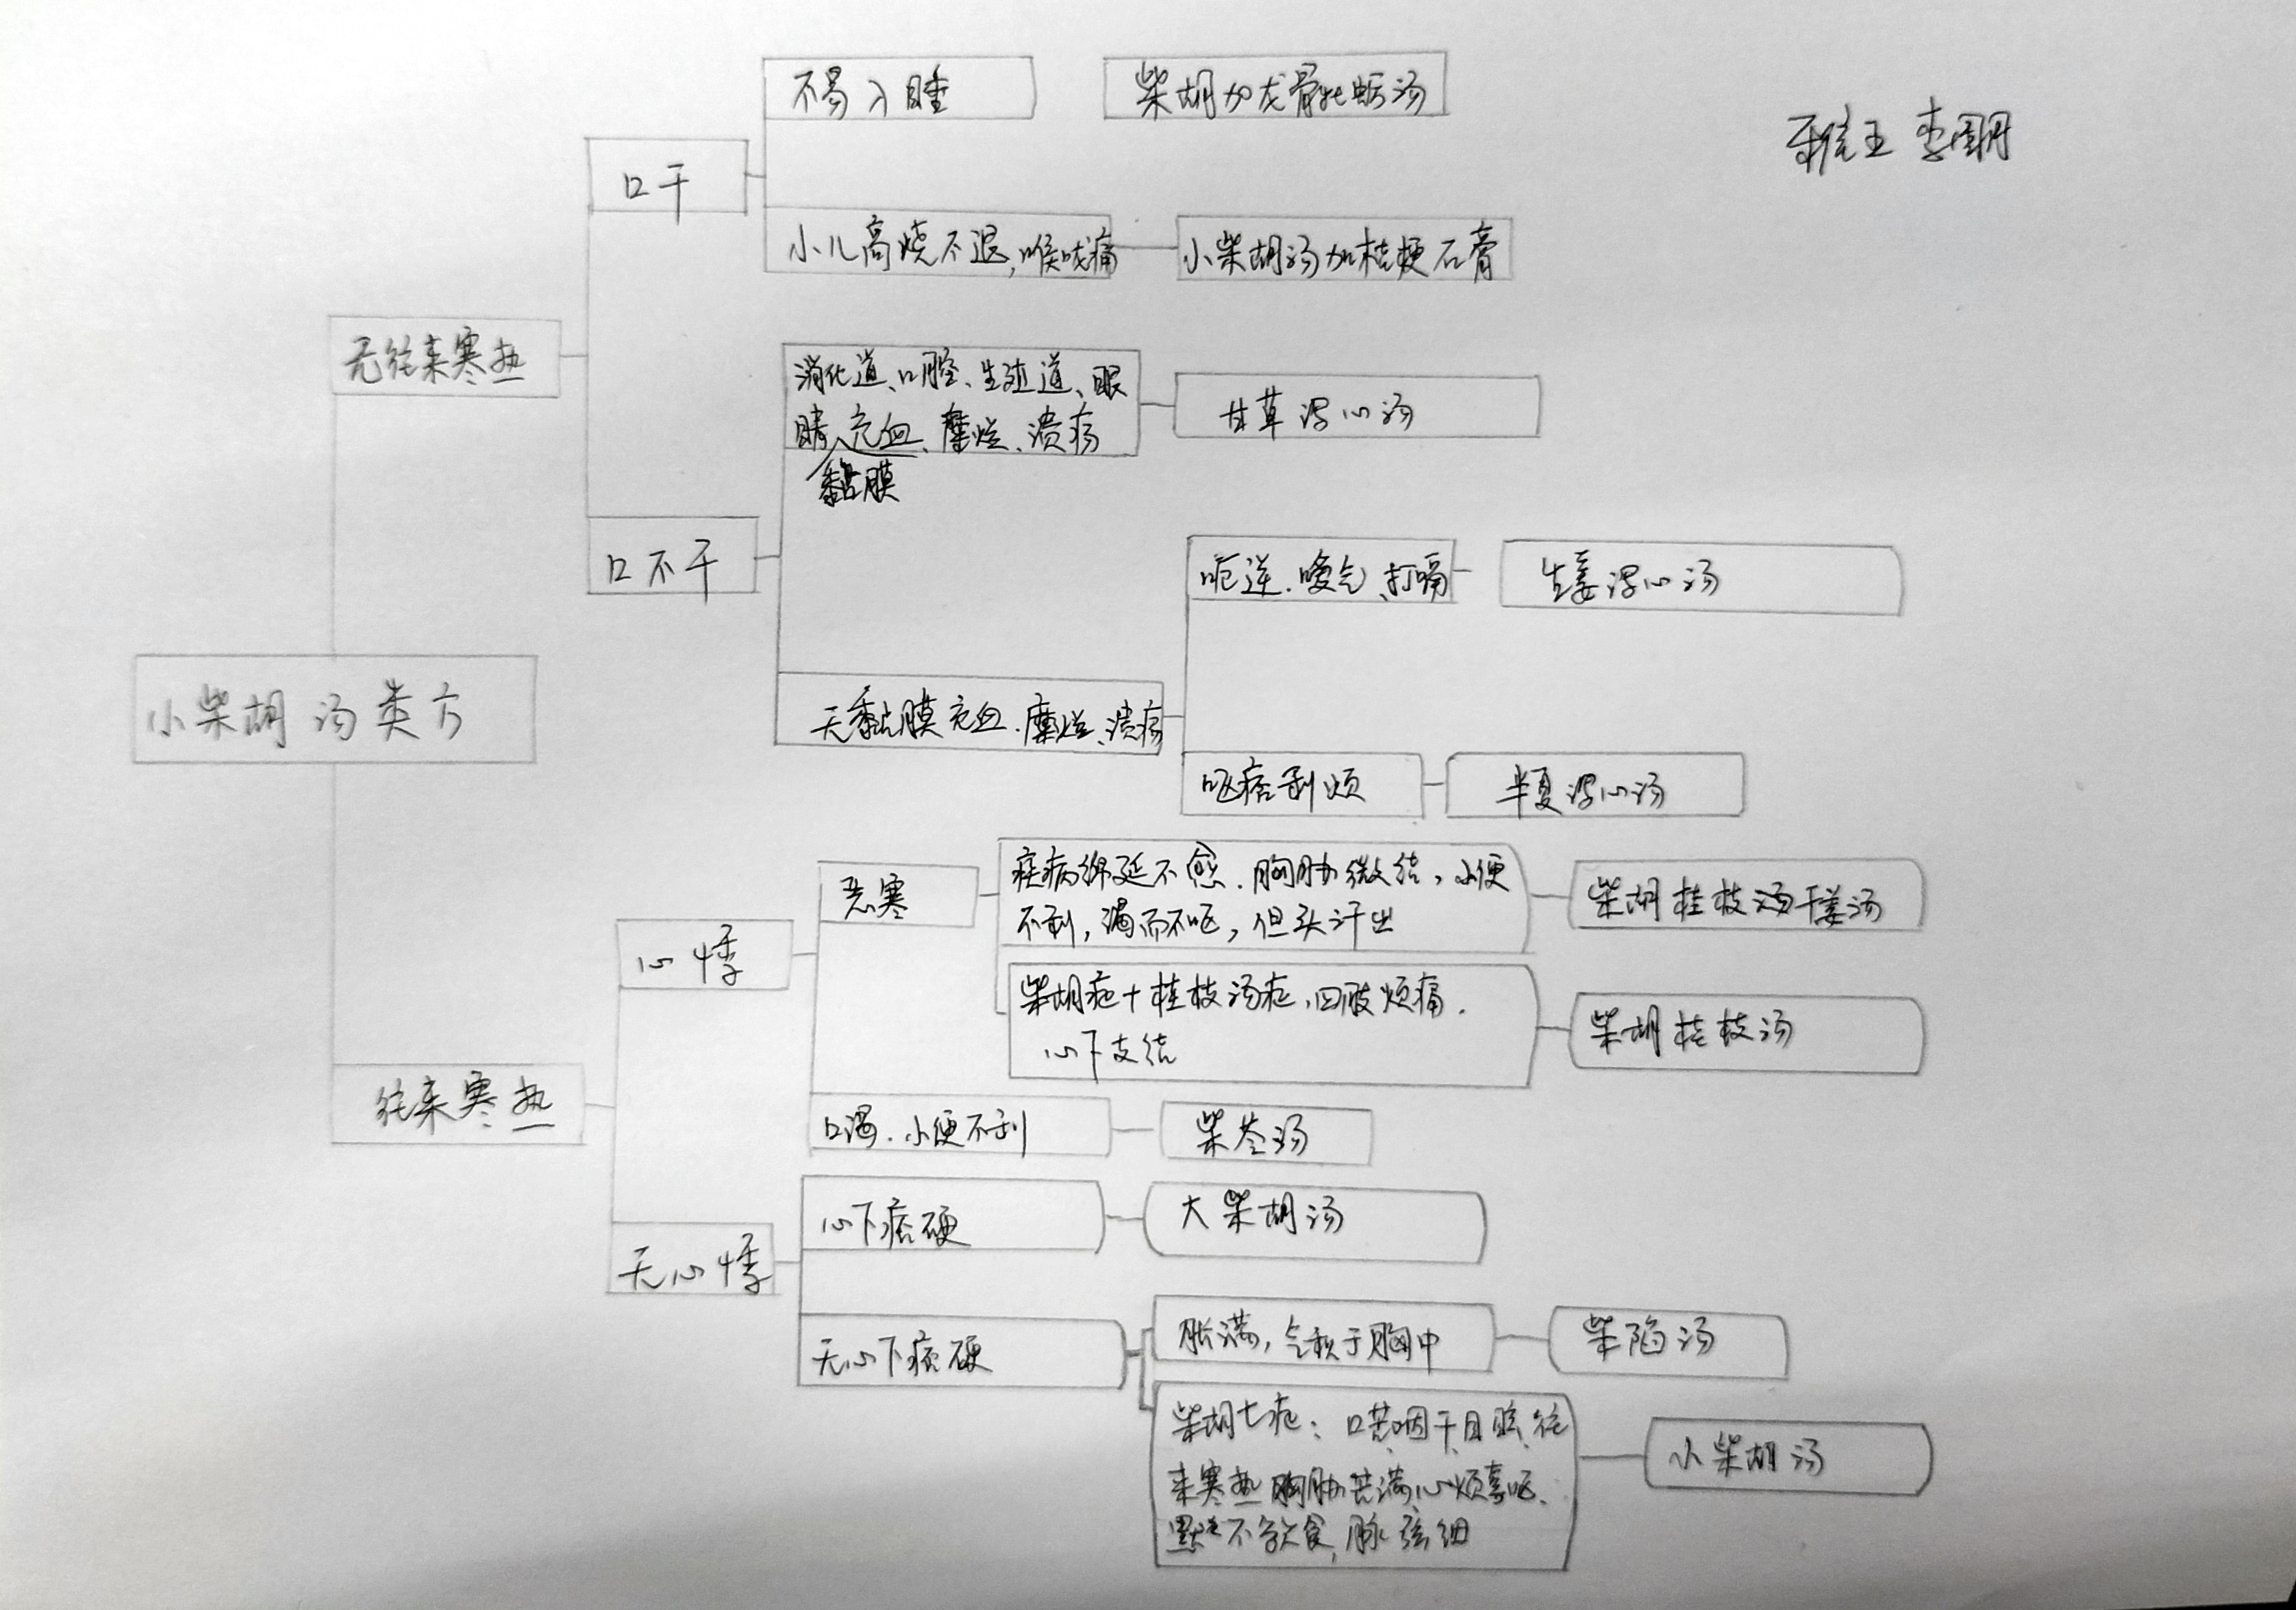 不易入睡
柴胡加龙骨牡蛎汤
口干
小儿高烧不退,喉咙痛
小柴胡汤加桔梗石膏
无往来寒热
消化道、口腔、生殖道、眼
睛充血、糜烂、溃疡
黏膜
甘草泻心汤
口不干
呃逆.嗳气、打嗝
生姜泻心汤
无黏膜充血.糜烂、溃疡
呕痞利烦
半夏泻心汤
小柴胡汤类方
往来寒热
心悸
恶寒
疾病绵延不愈.胸胁微结,小便
不利,渴而不呕,但头汗出
柴胡桂枝汤干姜汤
柴胡症+桂枝汤症,四肢烦痛.
心下支结
柴胡桂枝汤
口渴.小便不利
柴苓汤
无心悸
心下痞硬
大柴胡汤
无心下痞硬
胀满,气积于胸中
柴陷汤
柴胡七症:口苦咽干目眩、往
来寒热胸胁苦满心烦喜呕、
默々不欲食,脉弦细
小柴胡汤